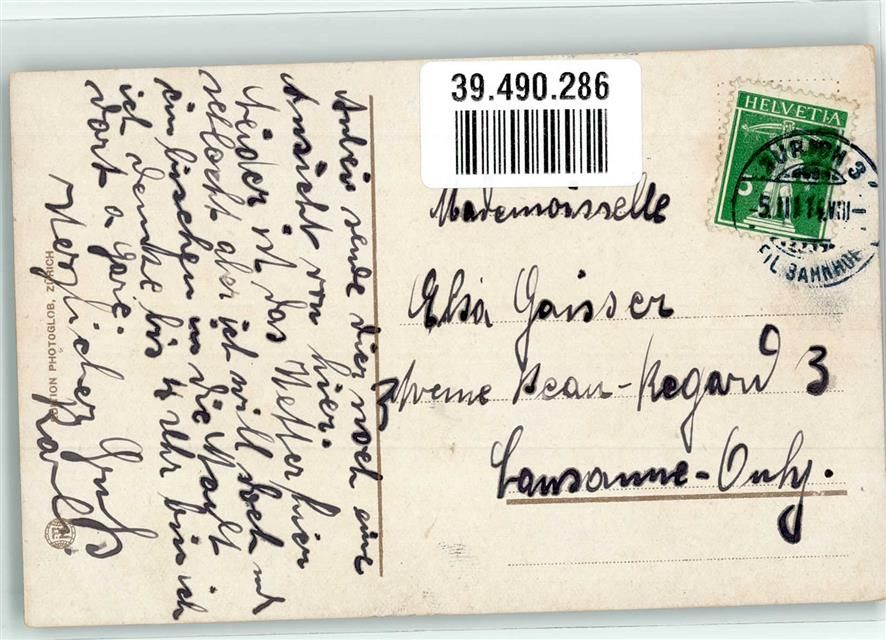 39.490.286
HELVETIA
5
ZÜRICH 3
5.III.14.VIII
FIL. BAHNHOF
Mademoisselle
Elsa Gaisser
Avenue Beau-Regard 3
Lausanne-Ouhy.
Anbei sende dier noch eine
Ansicht von hier.
Leider ist das Wetter hier
schlecht aber ich will doch mit
ein bischen in die Stadt
ich denke bis 4 Uhr bin ich
dort a Gare.
Herzlicher Gruß
Karl
EDITION PHOTOGLOB, ZÜRICH